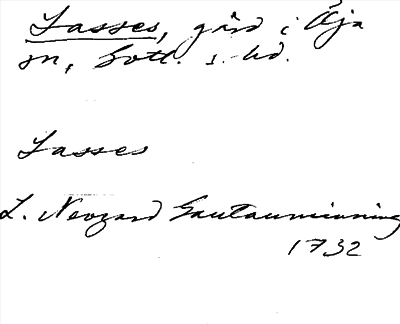 Lasses, gård i Öja
sn, Gotl. s. hd.
Lasses
L. Neogard Gautauminning
1732